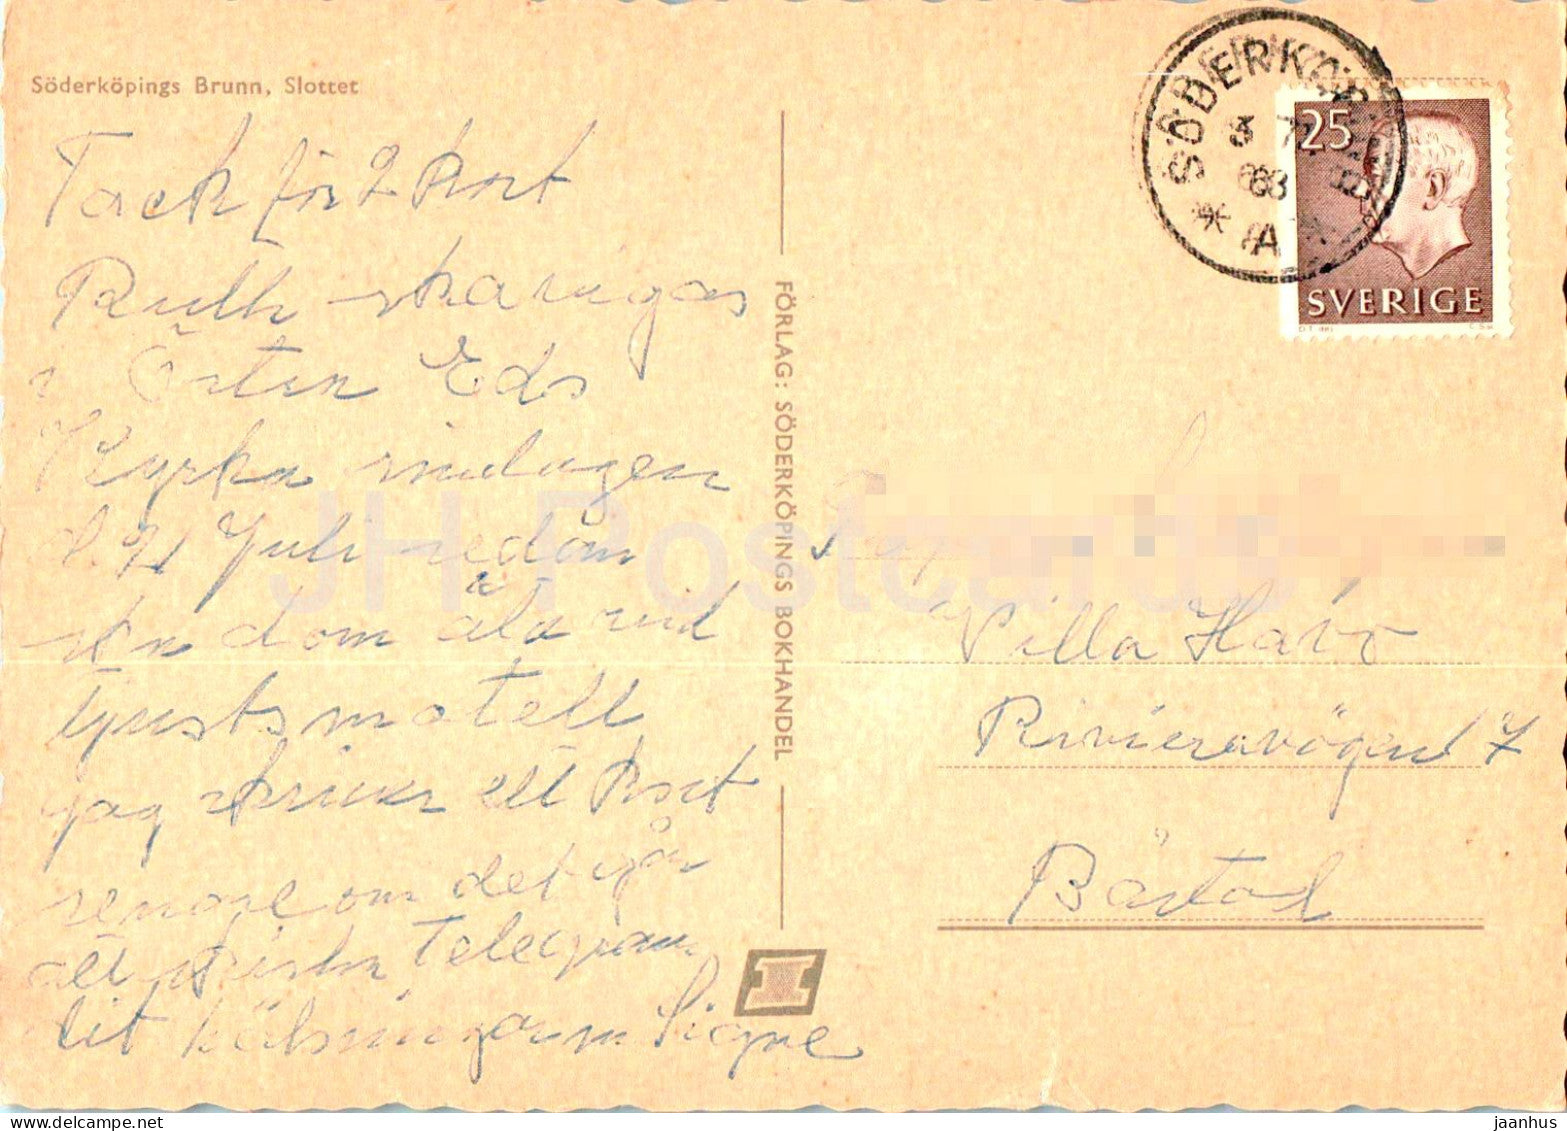 Söderköpings Brunn, Slottet
Tack för 2 Kort
Ruth ska vigas
i Östra Eds
Kyrka sindagen
d. 21 Juli sedan
ska dom äta vid
Tjusts matell
jag skriver ett Kort
senare om det går
att skicka Telegram
dit hälsningar m Signe
FÖRLAG: SÖDERKÖPINGS BOKHANDEL
SÖDERKÖPING
3 7
63
A
25
SVERIGE
Villa Havö
Rivieravägen 17
Båstad
JH Postcards
jaanhus